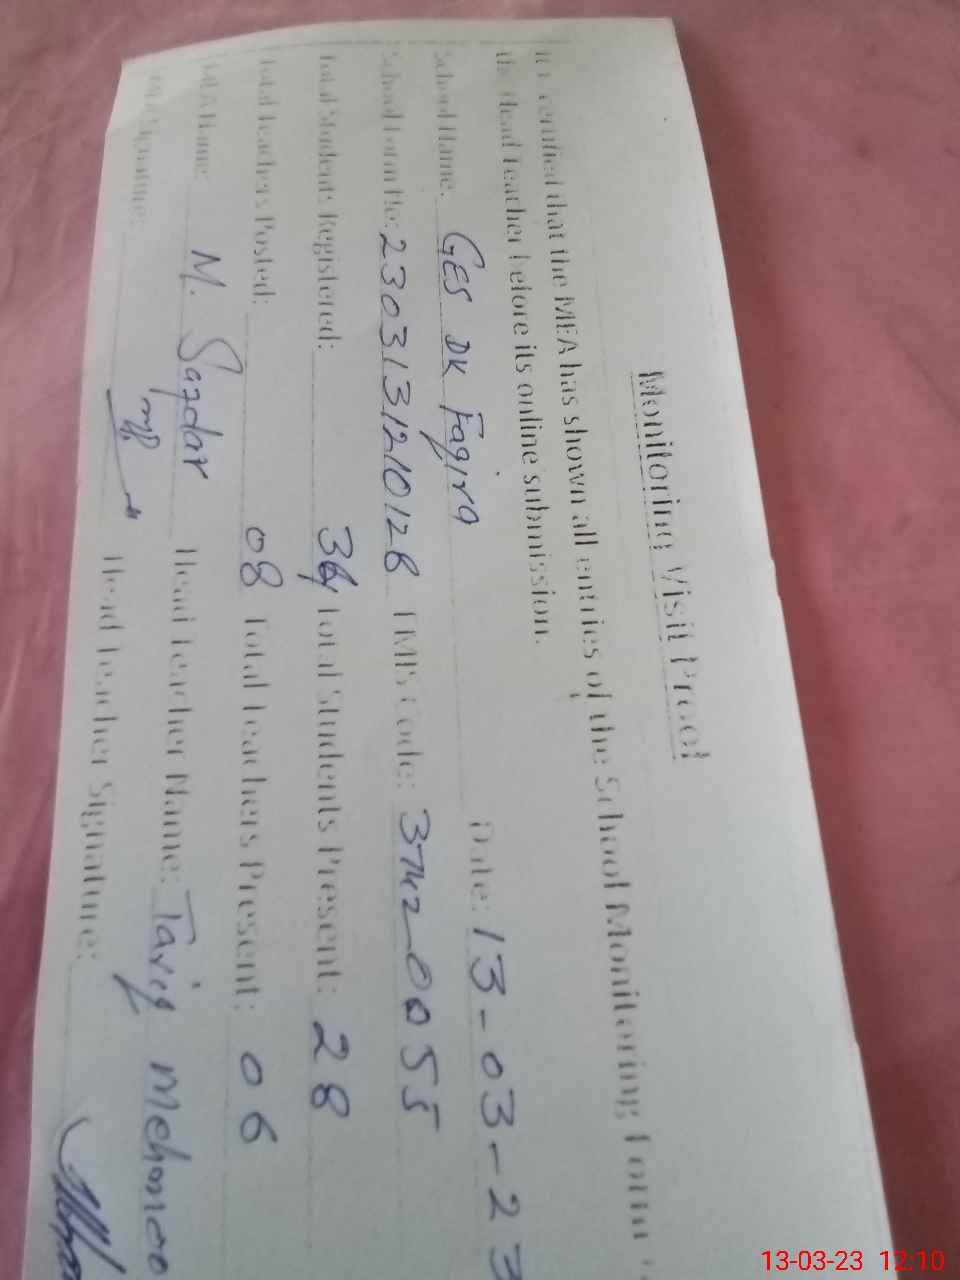 Monitoring Visit Proof
It is certified that the MEA has shown all entries of the School Monitoring Form
the Head Teacher before its online submission.
School Name: GES DK Faqira Date: 13-03-23
School Form No: 230313121012B EMIS Code: 37120055
Total Students Registered: Total Students Present: 28
Total Teachers Posted: 08 Total Teachers Present: 06
MEA Name: M. Safdar Head Teacher Name: Tariq Mehmood
MEA Signature: Head Teacher Signature:
13-03-23 12:10